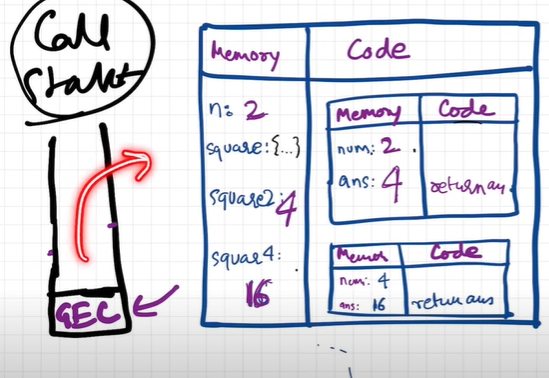 Call
Stack
GEC
Memory Code
n: 2
square: {...}
square2: 4
squar4:
16
Memory Code
num: 2
ans: 4 return an
Memor Code
num: 4
ans: 16 return ans